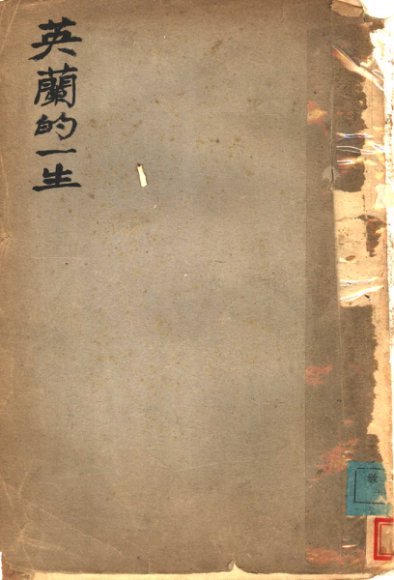 英蘭的一生